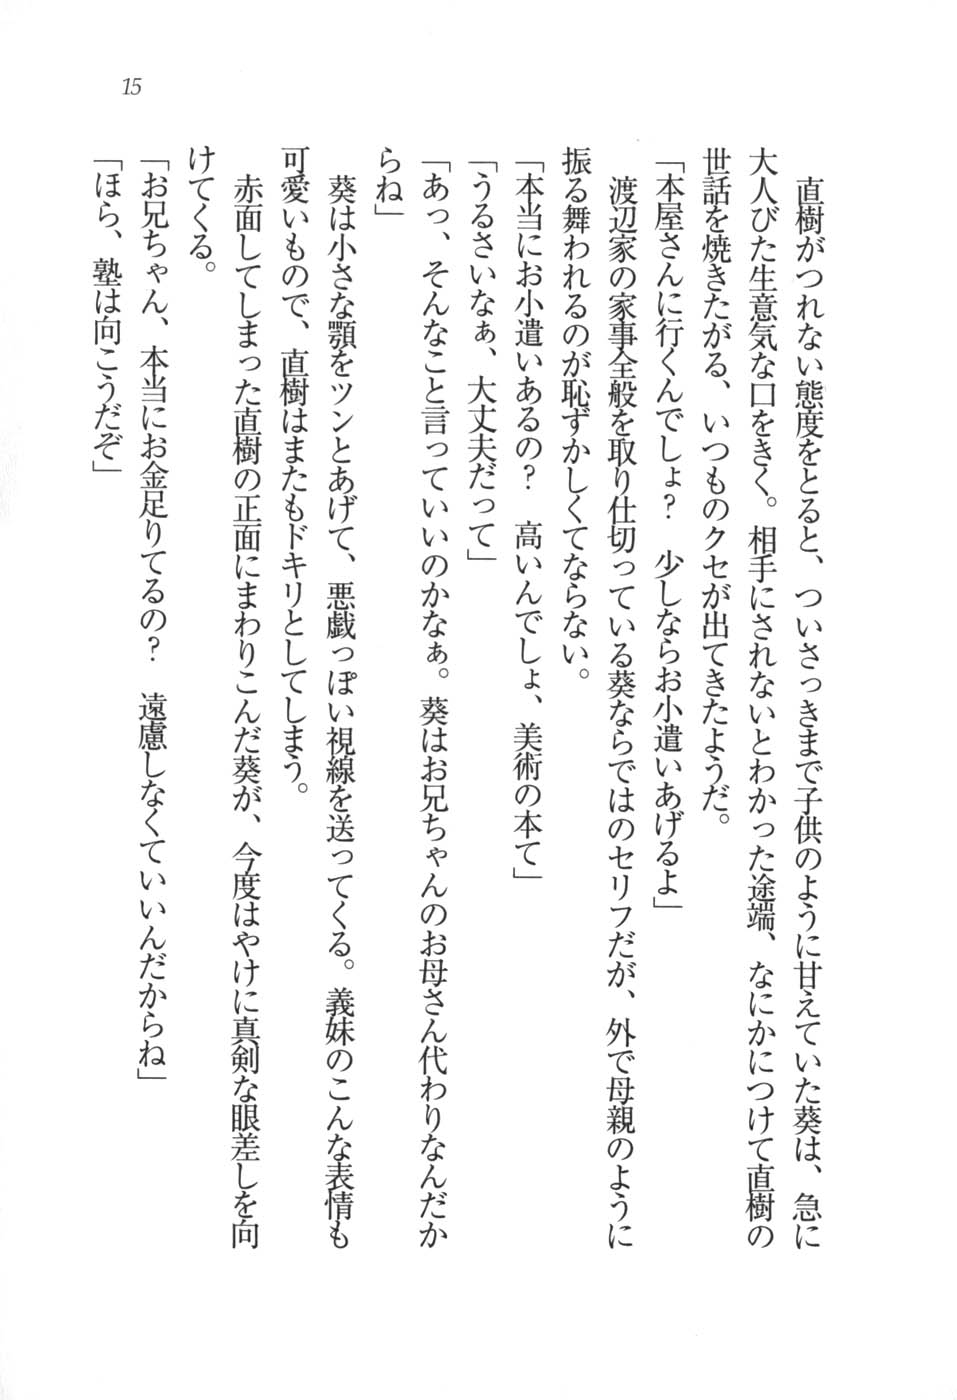 15
　直樹がつれない態度をとると、ついさっきまで子供のように甘えていた葵は、急に
大人びた生意気な口をきく。相手にされないとわかった途端、なにかにつけて直樹の
世話を焼きたがる、いつものクセが出てきたようだ。
「本屋さんに行くんでしょ？　少しならお小遣いあげるよ」
　渡辺家の家事全般を取り仕切っている葵ならではのセリフだが、外で母親のように
振る舞われるのが恥ずかしくてならない。
「本当にお小遣いあるの？　高いんでしょ、美術の本て」
「うるさいなぁ、大丈夫だって」
「あっ、そんなこと言っていいのかなぁ。葵はお兄ちゃんのお母さん代わりなんだか
らね」
　葵は小さな顎をツンとあげて、悪戯っぽい視線を送ってくる。義妹のこんな表情も
可愛いもので、直樹はまたもドキリとしてしまう。
　赤面してしまった直樹の正面にまわりこんだ葵が、今度はやけに真剣な眼差しを向
けてくる。
「お兄ちゃん、本当にお金足りてるの？　遠慮しなくていいんだからね」
「ほら、塾は向こうだぞ」